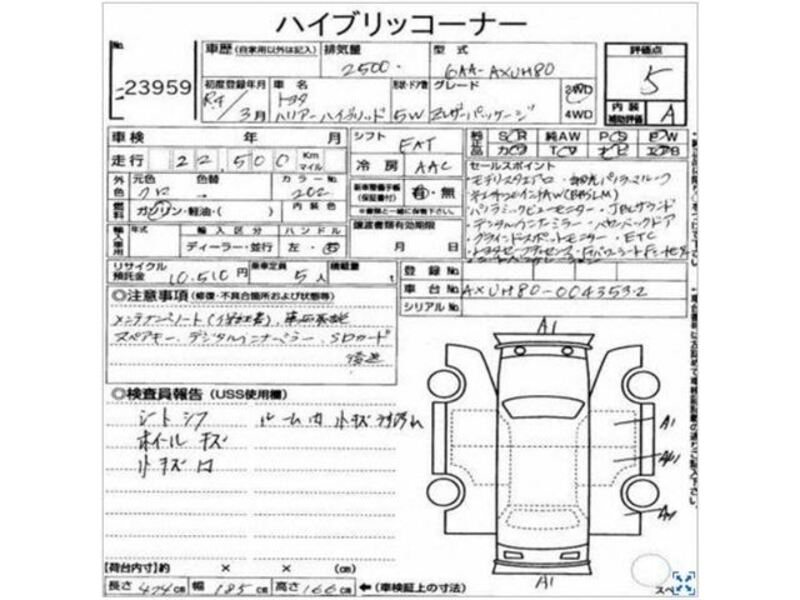 ハイブリッコーナー
No.
23959
車歴 (自家用以外は記入)
排気量
2500
型式
6AA-AXUH80
評価点
5
初度登録年月
R4/3月
車名
トヨタ
ハリアーハイブリッド
形状・ドア数
5W
グレード
Zレザーパッケージ
2WD
4WD
内装
補助評価
A
車検 年 月
シフト
FAT
SR 純AW PS PW
カワ TV ナビ エアB
走行
22,500
Km
マイル
冷房
AAC
セールスポイント
外色
元色
クロ
色替
カラーNo.
202
新車整備手帳
(保証書付)
有・無
※書類と一緒に保管下さい。
燃料
ガソリン・軽油・( )
内装色
譲渡書類有効期限
月 日
輸入車用
年式
輸入区分
ディーラー・並行
ハンドル
左・右
パノラミックビューモニター・JBLサウンド
デジタルインナーミラー・パワーバックドア
ブラインドスポットモニター・ETC
リサイクル
預託金
10,510円
乗車定員
5人
積載量
t
登録No.
車台No.
AXUH80-0043532
シリアルNo.
◎注意事項 (修復・不具合箇所および状態等)
スペアキー、デジタルインナーミラー、SDカード
後送
◎検査員報告 (USS使用欄)
シートシワ
ルーム内 小キズ
ホイールキズ
小キズ
A1
A1
A1
【荷台内寸】約 × × (cm)
長さ 474cm 幅 185cm 高さ 166cm ←(車検証上の寸法)